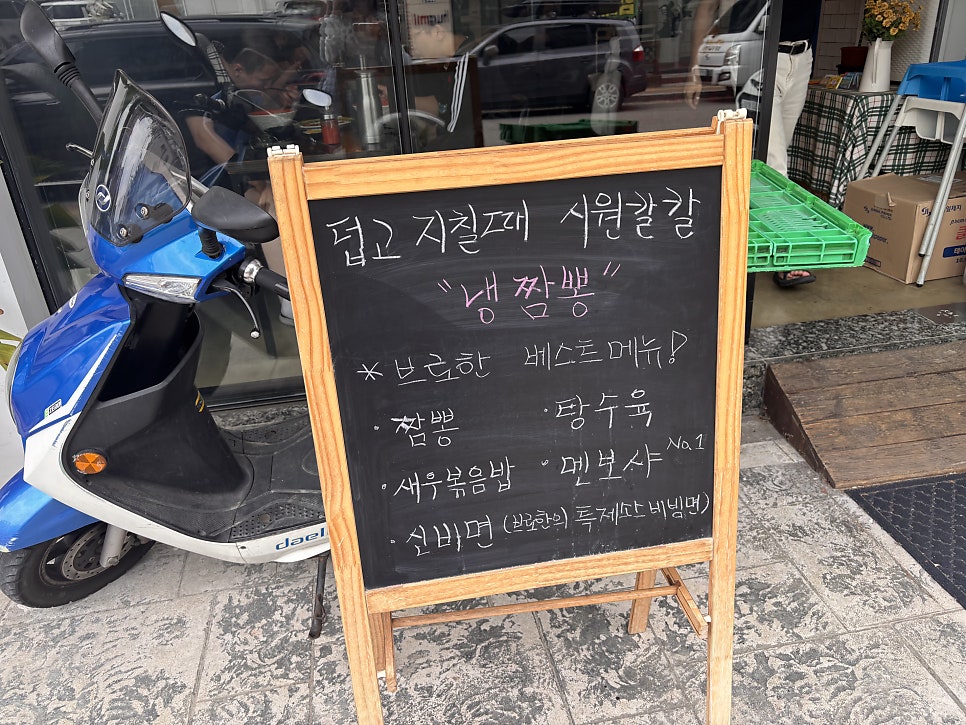 덥고 지칠때 시원칼칼
"냉짬뽕"
* 브로한 베스트메뉴!
· 짬뽕 · 탕수육
· 새우볶음밥 · 멘보샤 No.1
· 신비면 (브로한의 특제소스 비빔면)
daeli